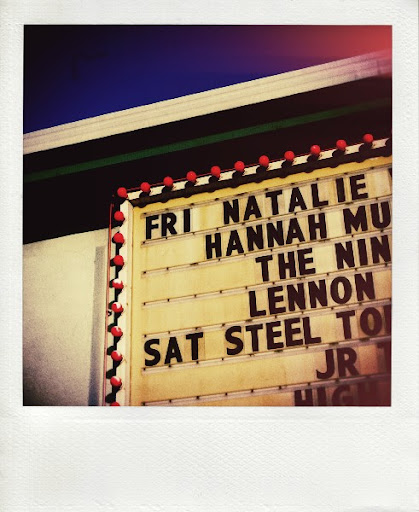 FRI NATALIE
HANNAH MU
THE NIN
LENNON
SAT STEEL TO
JR
HIGH